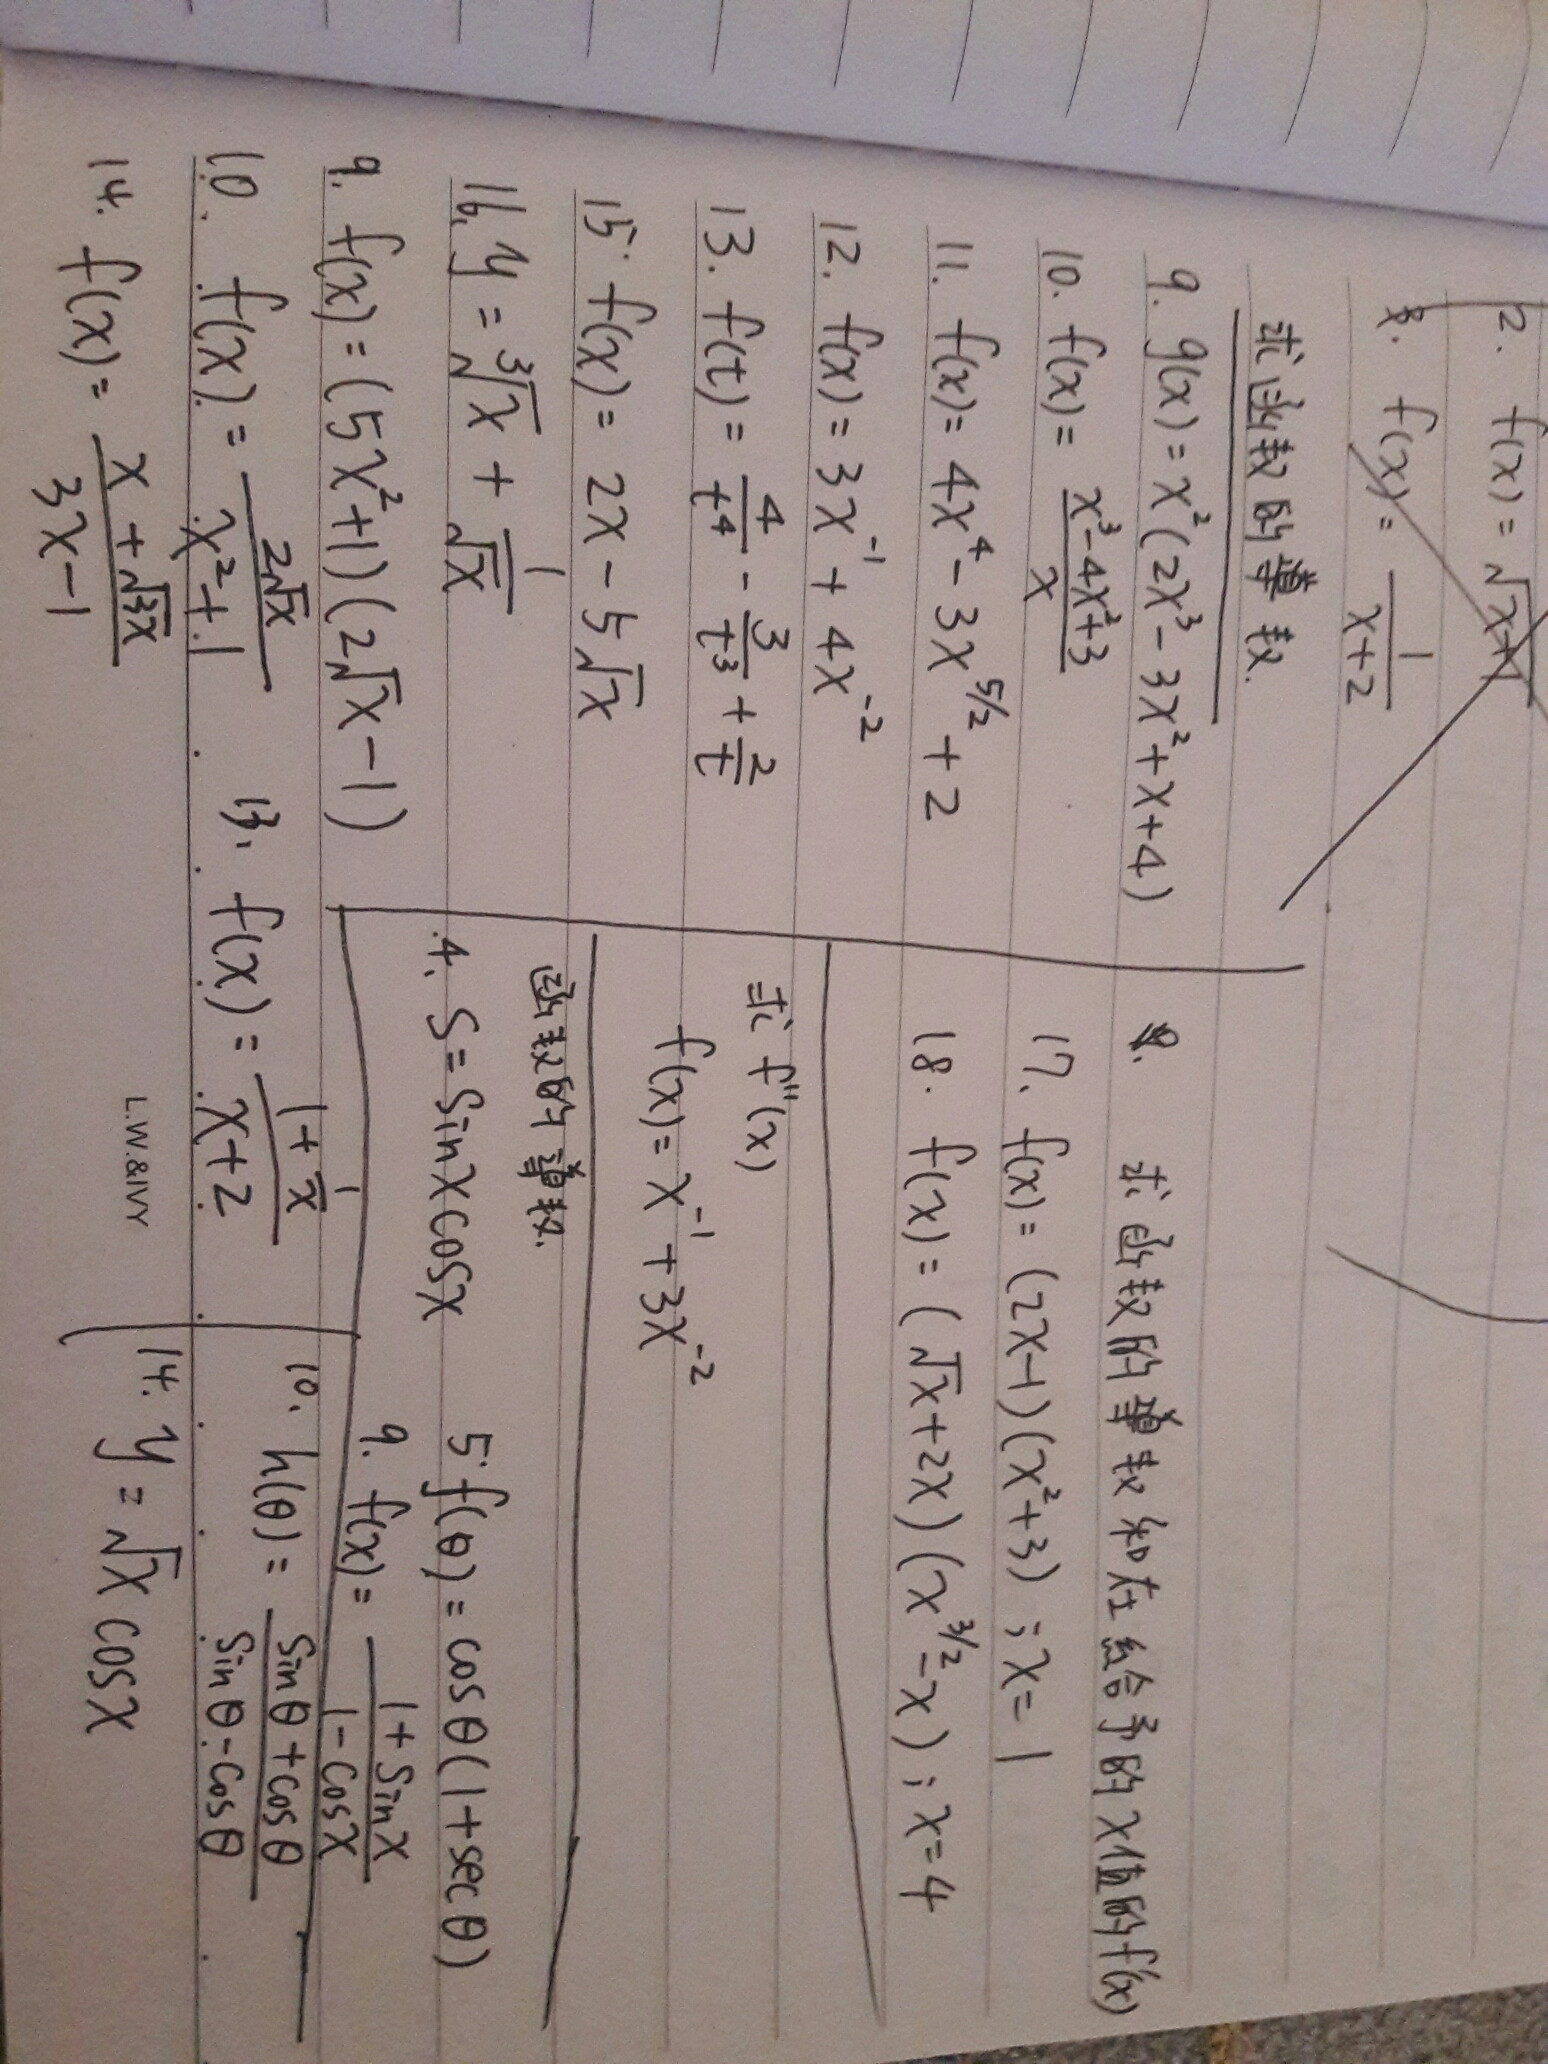 2. f(x) = √x+1
3. f(x) = 1/(x+2)
求函数的导数.
9. g(x) = x²(2x³ - 3x² + x + 4)
10. f(x) = (x³ - 4x² + 3)/x
11. f(x) = 4x⁴ - 3x^(5/2) + 2
12. f(x) = 3x⁻¹ + 4x⁻²
13. f(t) = 4/t⁴ - 3/t³ + 2/t
15. f(x) = 2x - 5√x
16. y = ³√x + 1/√x
9. f(x) = (5x²+1)(2√x - 1)
10. f(x) = 2√x/(x²+1)
13. f(x) = (1 + 1/x)/(x+2)
14. f(x) = (x + √3x)/(3x - 1)
求函数的导数和在给予的x值的f'(x)
17. f(x) = (2x-1)(x²+3) ; x = 1
18. f(x) = (√x + 2x)(x^(3/2) - x) ; x = 4
求 f''(x)
f(x) = x⁻¹ + 3x⁻²
函数的导数.
4. S = sinx cosx
5. f(θ) = cosθ(1 + secθ)
9. f(x) = (1 + sinx)/(1 - cosx)
10. h(θ) = (sinθ + cosθ)/(sinθ - cosθ)
14. y = √x cosx
L.W.&IVY